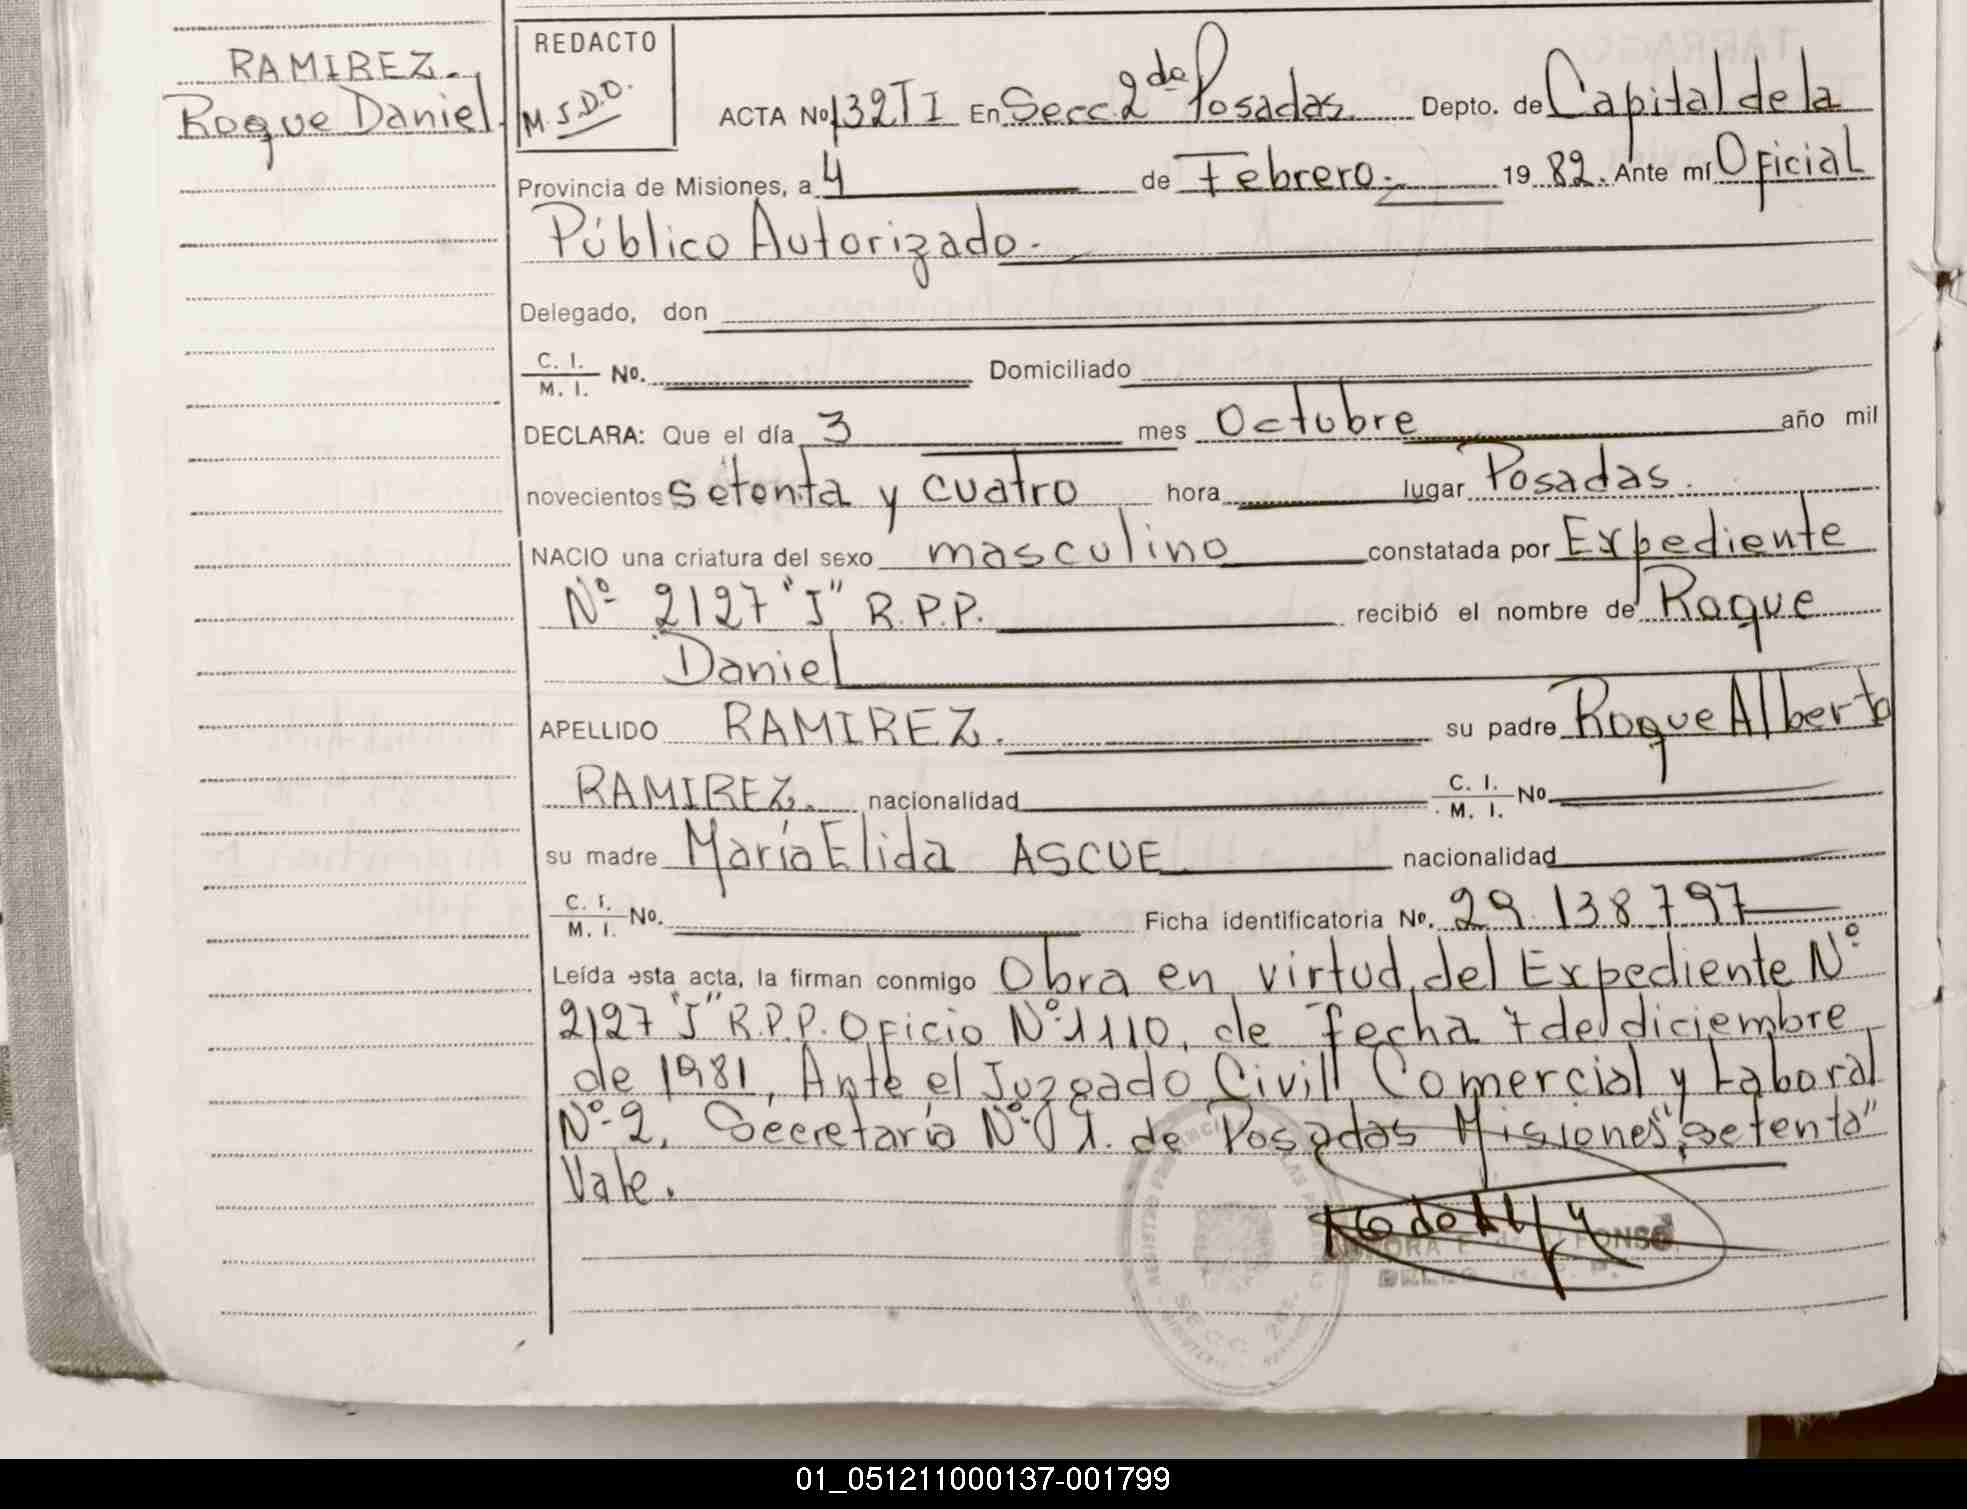 RAMIREZ.
Roque Daniel
REDACTO
M.S.D.O.
ACTA No 132 T I En Secc 2da Posadas. Depto. de Capital de la
Provincia de Misiones, a 4 de Febrero. 1982. Ante mí Oficial
Público Autorizado.
Delegado, don
C. I. / M. I. No. Domiciliado
DECLARA: Que el día 3 mes Octubre año mil
novecientos setenta y cuatro hora lugar Posadas.
NACIO una criatura del sexo masculino constatada por Expediente
Nº 2127 "J" R.P.P. recibió el nombre de Roque
Daniel
APELLIDO RAMIREZ. su padre Roque Alberto
RAMIREZ. nacionalidad C. I. / M. I. No
su madre María Elida ASCUE nacionalidad
C. I. / M. I. No. Ficha identificatoria No. 29.138.797
Leída esta acta, la firman conmigo Obra en virtud, del Expediente Nº
2127 "J" R.P.P. Oficio Nº 1110, de fecha 7 del diciembre
de 1981, Ante el Juzgado Civil Comercial y Laboral
Nº 2, Secretaría Nº 1. de Posadas Misiones, "setenta"
Vale.
01_051211000137-001799